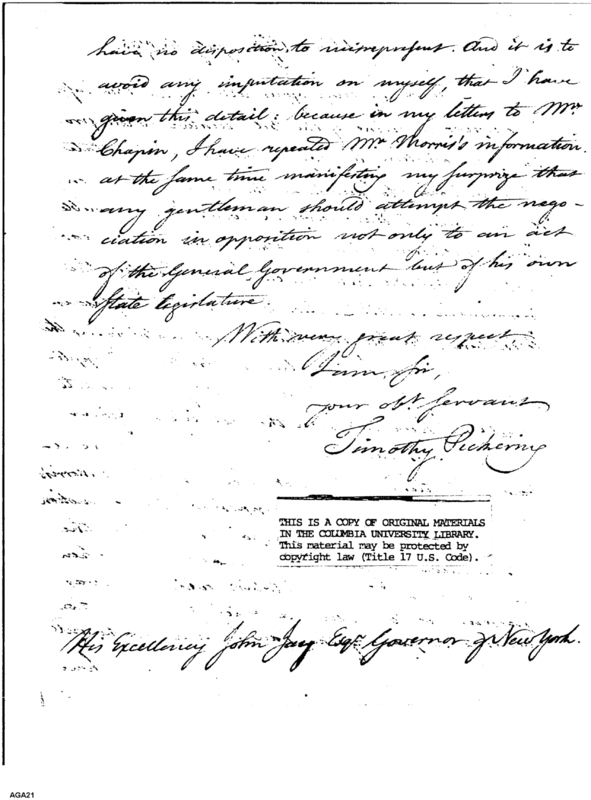 have no disposition to misrepresent. And it is to
avoid any imputation on myself, that I have
given this detail: because in my letters to Mr.
Chapin, I have repeated Mr. Morris's information,
at the same time manifesting my surprize that
any gentleman should attempt the nego-
ciation in opposition not only to an act
of the General Government but of his own
State legislature.
With very great respect,
I am Sir,
your obt. servant
Timothy Pickering
THIS IS A COPY OF ORIGINAL MATERIALS
IN THE COLUMBIA UNIVERSITY LIBRARY.
This material may be protected by
copyright law (Title 17 U.S. Code).
His Excellency John Jay Esqr. Governor of New York.
AGA21